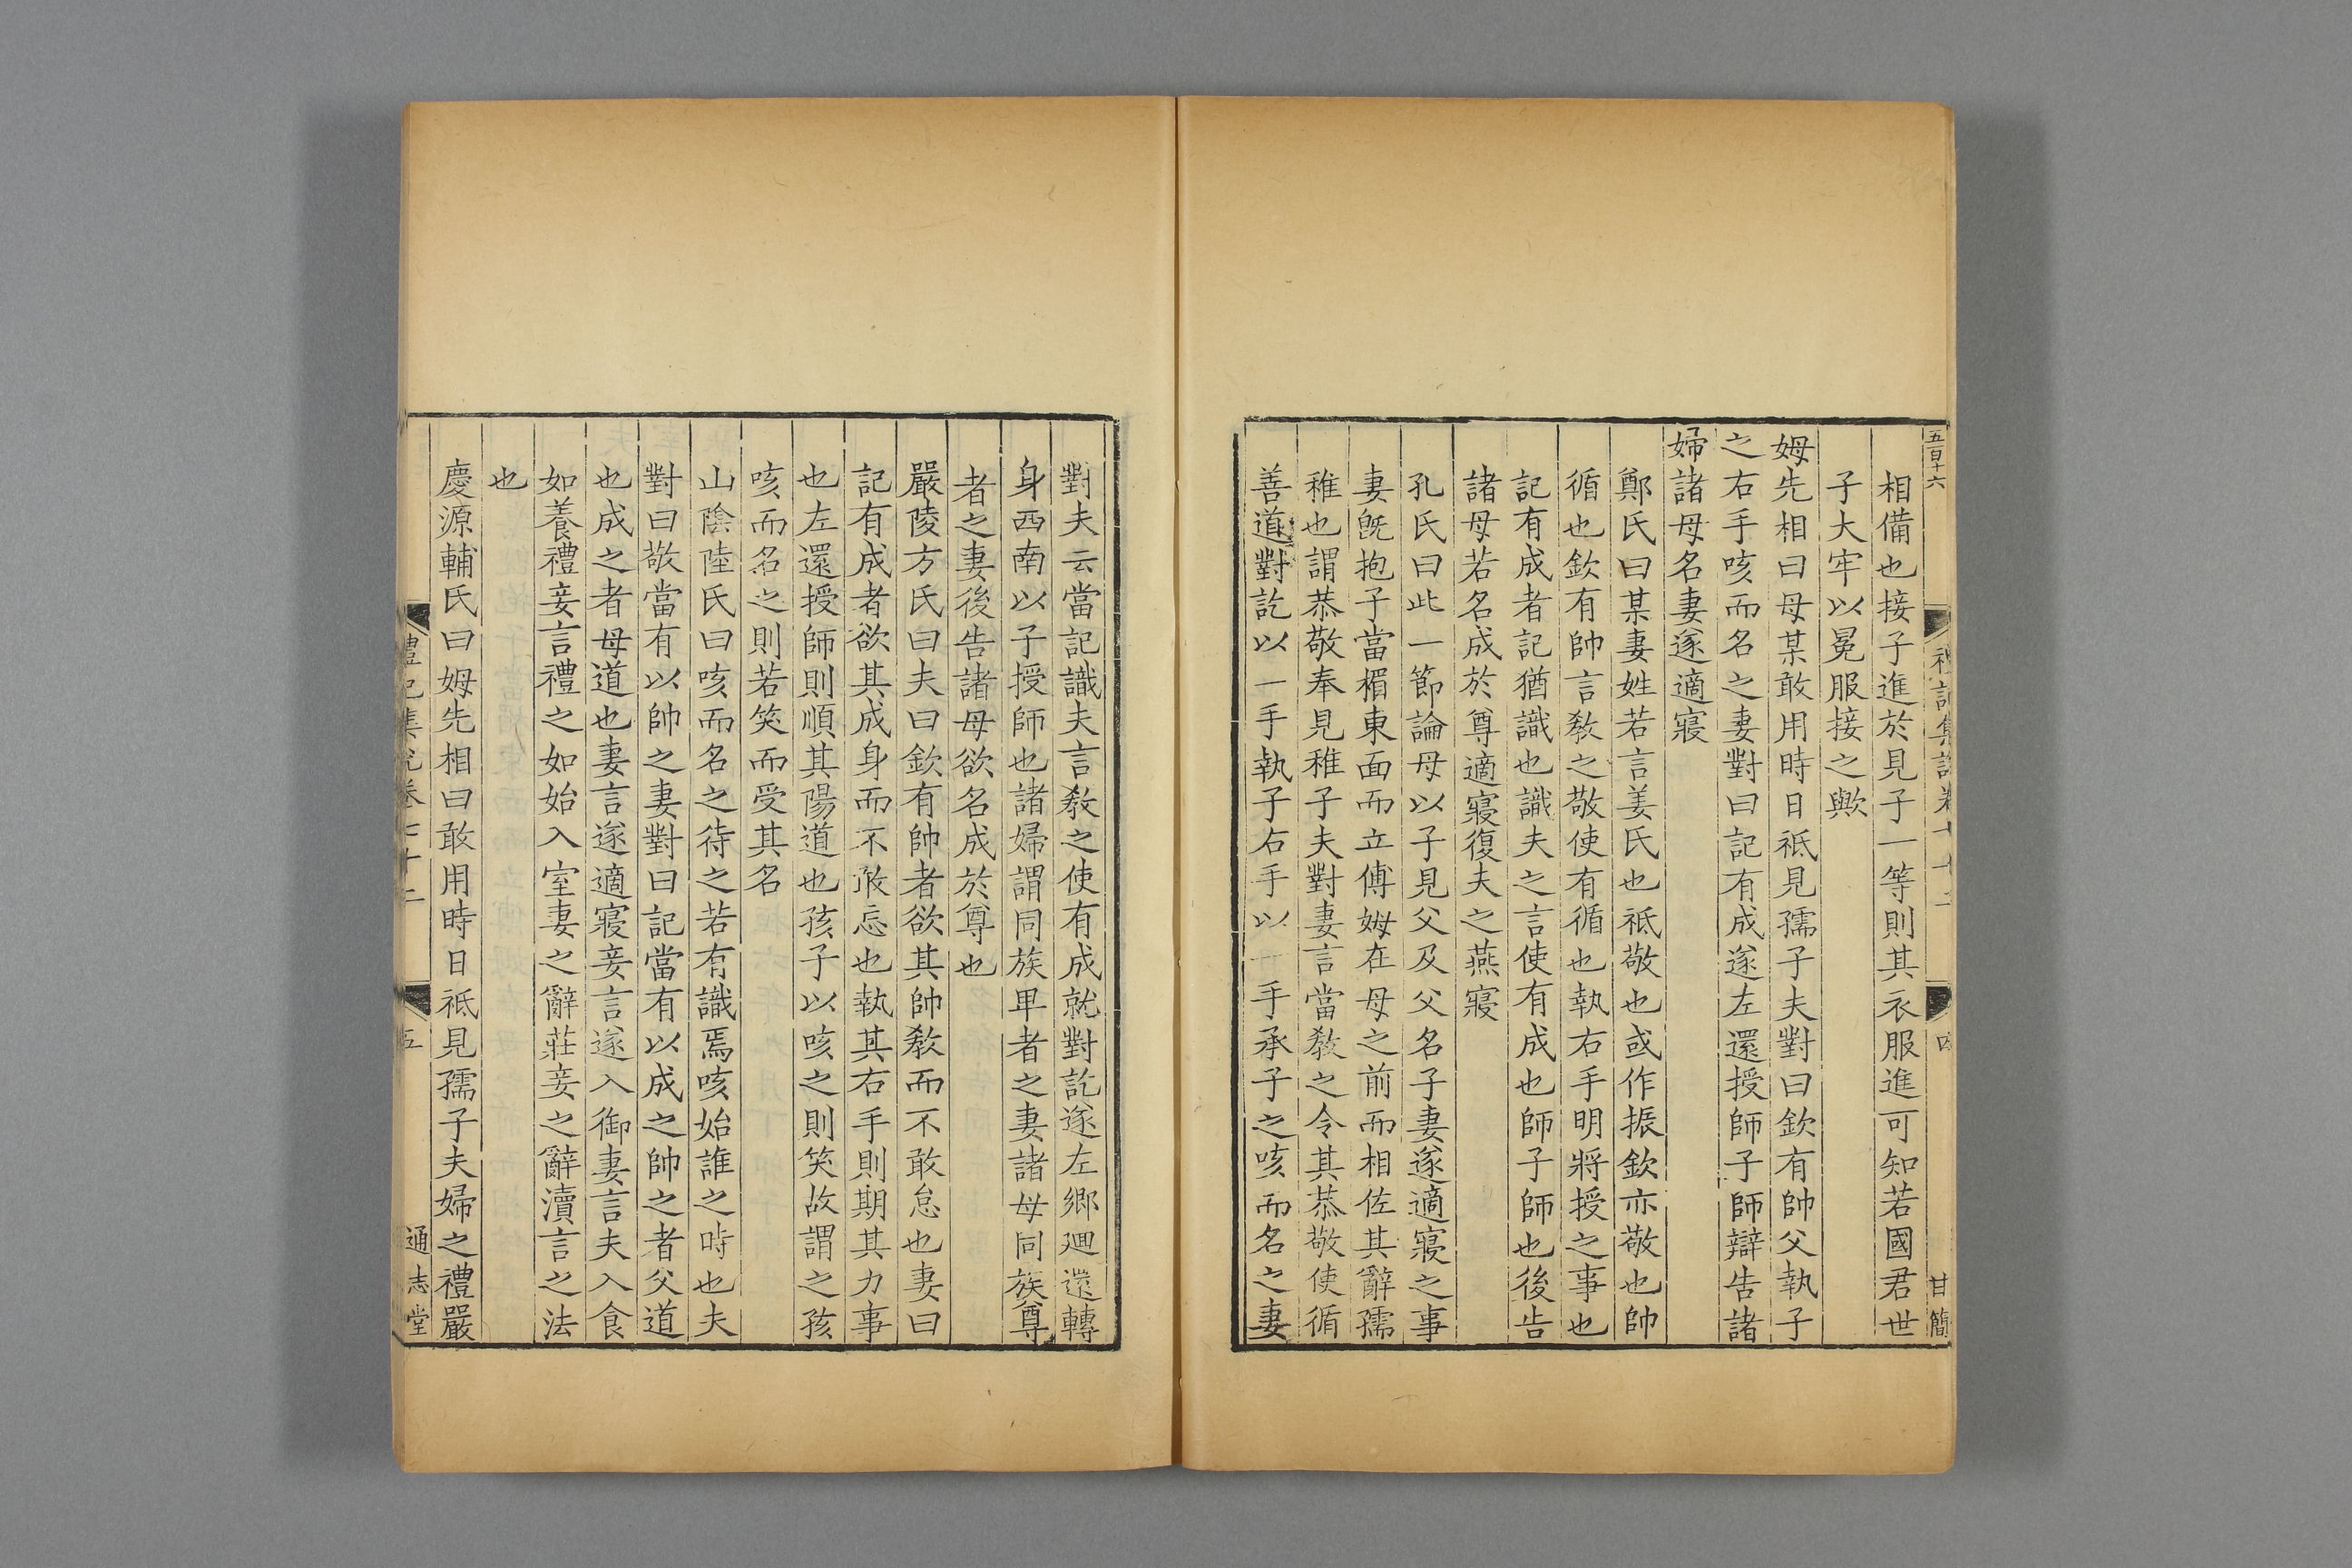 五百十六
甘簡
相備也接子進於見子一等則其衣服進可知若國君世
子大牢以冕服接之歟
姆先相曰母某敢用時日祗見孺子夫對曰欽有帥父執子
之右手咳而名之妻對曰記有成遂左還授師子師辯告諸
婦諸母名妻遂適寢
鄭氏曰某妻姓若言姜氏也祗敬也或作振欽亦敬也帥
循也欽有帥言敎之敬使有循也執右手明將授之事也
記有成者記猶識也識夫之言使有成也師子師也後告
諸母若名成於尊適寢復夫之燕寢
孔氏曰此一節論母以子見父及父名子妻遂適寢之事
妻旣抱子當楣東面而立傅姆在母之前而相佐其辭孺
稚也謂恭敬奉見稚子夫對妻言當敎之令其恭敬使循
善道對訖以一手執子右手以一手承子之咳而名之妻
對夫云當記識夫言敎之使有成就對訖遂左鄉迴還轉
身西南以子授師也諸婦謂同族卑者之妻諸母同族尊
者之妻後告諸母欲名成於尊也
嚴陵方氏曰夫曰欽有帥者欲其帥敎而不敢怠也妻曰
記有成者欲其成身而不敢忘也執其右手則期其力事
也左還授師則順其陽道也孩子以咳之則笑故謂之孩
咳而名之則若笑而受其名
山陰陸氏曰咳而名之待之若有識焉咳始誰之時也夫
對曰敬當有以帥之妻對曰記當有以成之帥之者父道
也成之者母道也妻言遂適寢妾言遂入御妻言夫入食
如養禮妾言禮之如始入室妻之辭莊妾之辭瀆言之法
也
慶源輔氏曰姆先相曰敢用時日祗見孺子夫婦之禮嚴
禮記集說卷七十二
五
通志堂